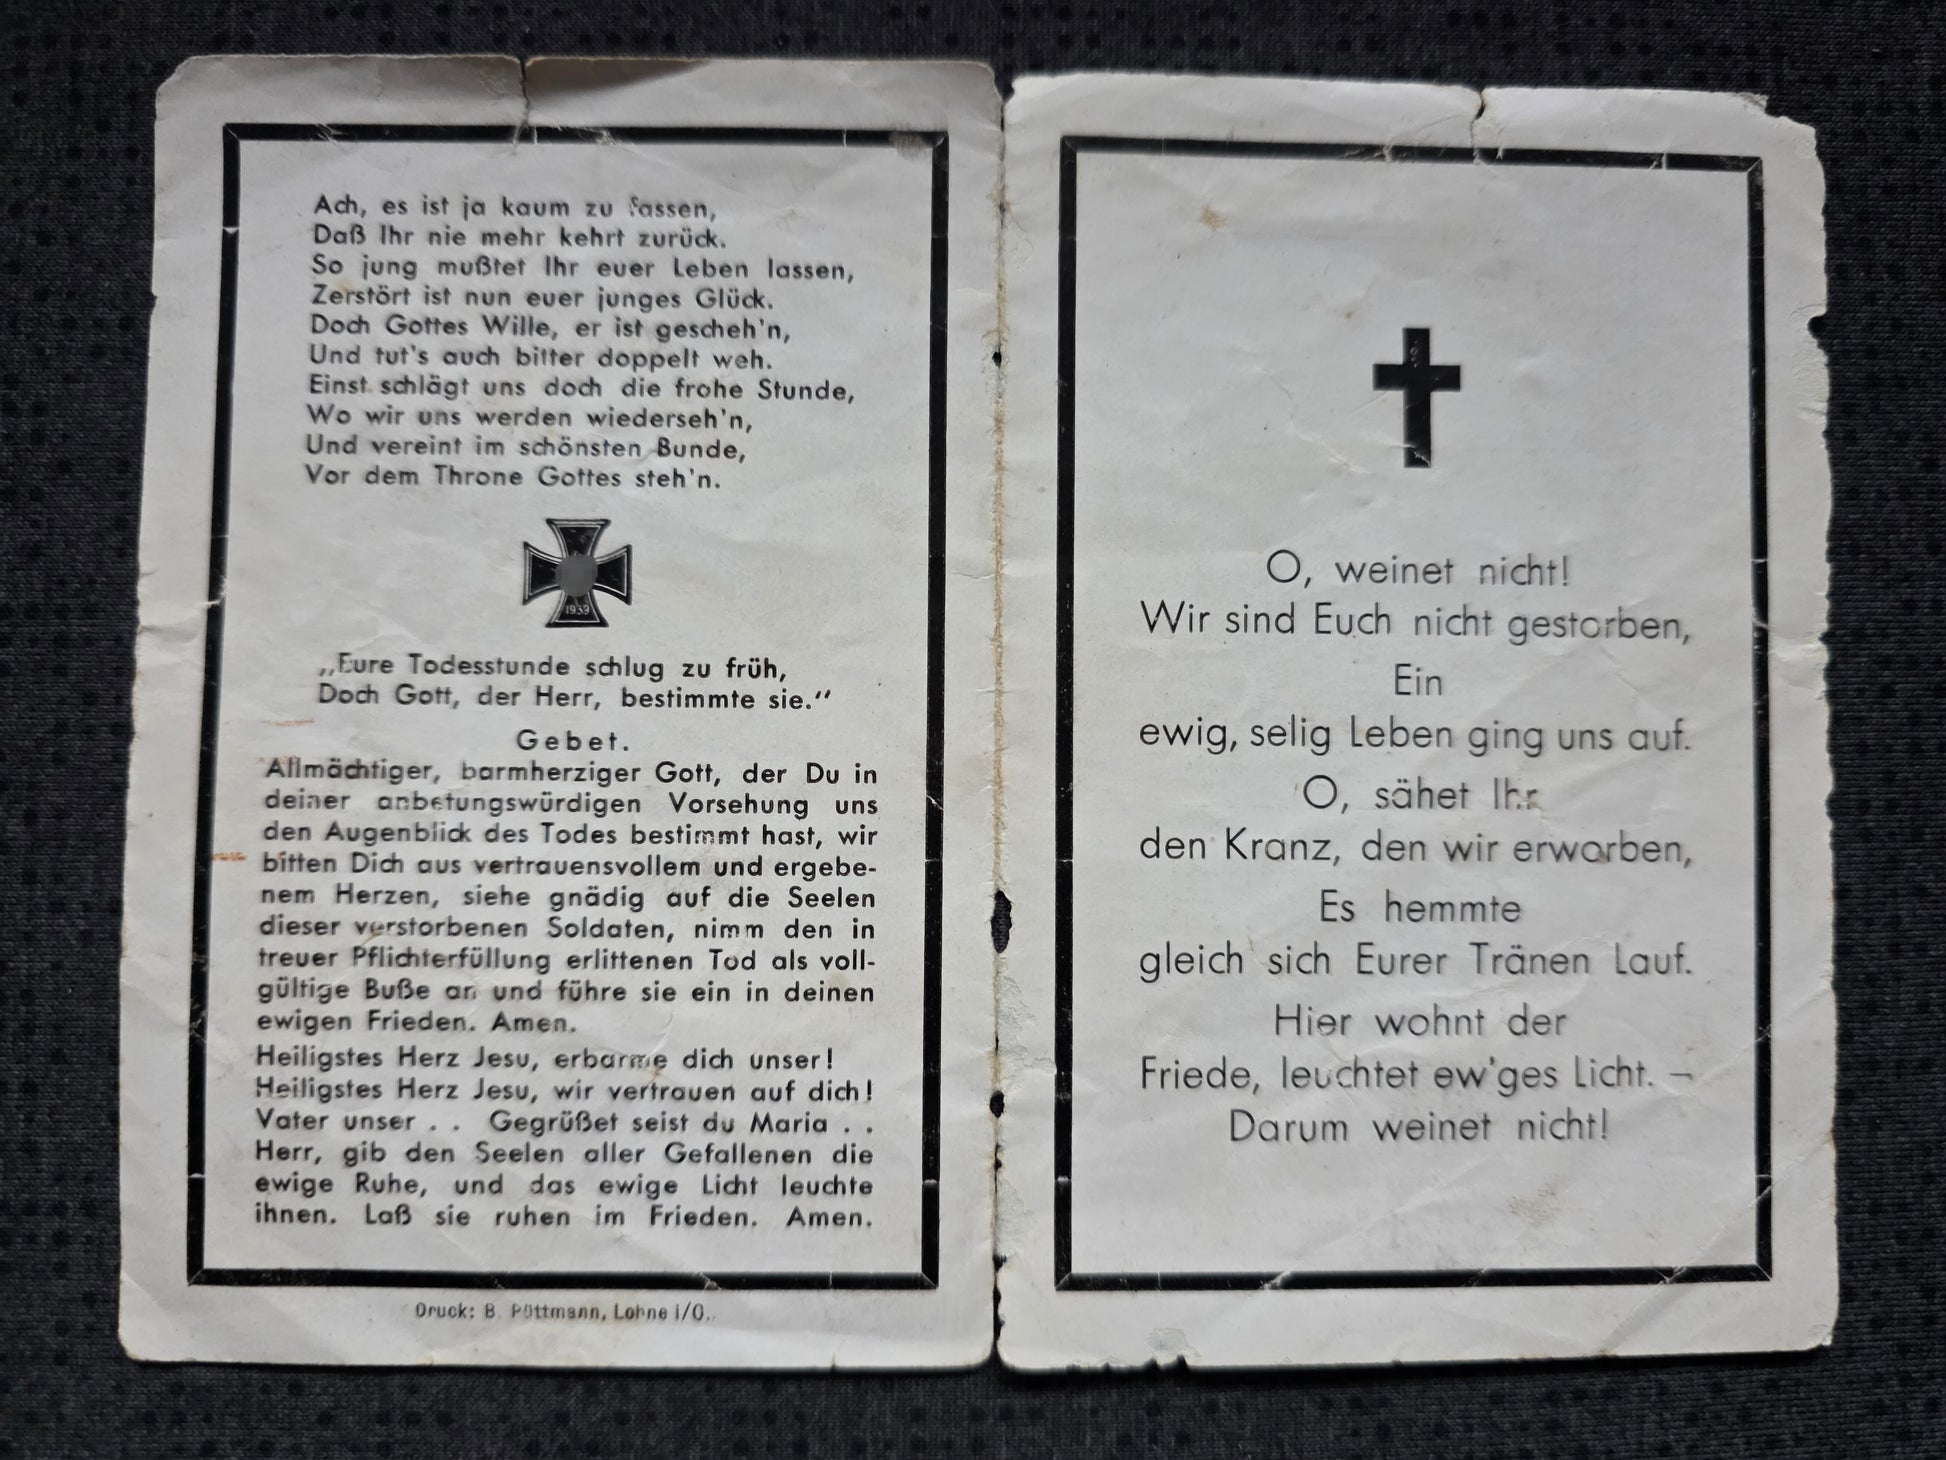 Ach, es ist ja kaum zu fassen,
Daß Ihr nie mehr kehrt zurück.
So jung mußtet Ihr euer Leben lassen,
Zerstört ist nun euer junges Glück.
Doch Gottes Wille, er ist gescheh'n,
Und tut's auch bitter doppelt weh.
Einst schlägt uns doch die frohe Stunde,
Wo wir uns werden wiederseh'n,
Und vereint im schönsten Bunde,
Vor dem Throne Gottes steh'n.
1939
„Eure Todesstunde schlug zu früh,
Doch Gott, der Herr, bestimmte sie.“
Gebet.
Allmächtiger, barmherziger Gott, der Du in
deiner anbetungswürdigen Vorsehung uns
den Augenblick des Todes bestimmt hast, wir
bitten Dich aus vertrauensvollem und ergebe-
nem Herzen, siehe gnädig auf die Seelen
dieser verstorbenen Soldaten, nimm den in
treuer Pflichterfüllung erlittenen Tod als voll-
gültige Buße an und führe sie ein in deinen
ewigen Frieden. Amen.
Heiligstes Herz Jesu, erbarme dich unser!
Heiligstes Herz Jesu, wir vertrauen auf dich!
Vater unser . . Gegrüßet seist du Maria . .
Herr, gib den Seelen aller Gefallenen die
ewige Ruhe, und das ewige Licht leuchte
ihnen. Laß sie ruhen im Frieden. Amen.
Druck: B. Püttmann, Lohne i/O.
O, weinet nicht!
Wir sind Euch nicht gestorben,
Ein
ewig, selig Leben ging uns auf.
O, sähet Ihr
den Kranz, den wir erworben,
Es hemmte
gleich sich Eurer Tränen Lauf.
Hier wohnt der
Friede, leuchtet ew'ges Licht. –
Darum weinet nicht!